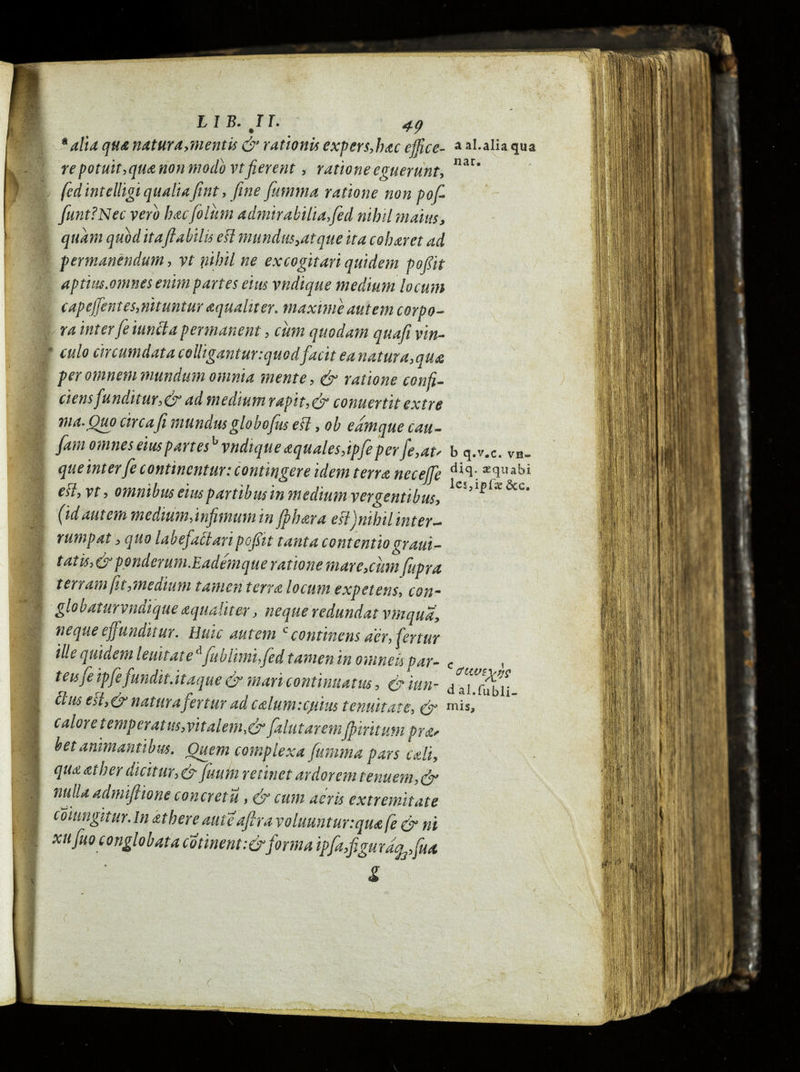 LIB. II. 49
ᵃ alia quæ natura, mentis & rationis expers, hæc effice-
re potuit, quæ non modò vt fierent, ratione eguerunt,
sed intelligi qualia sint, sine summa ratione non pos-
sunt? Nec verò hæc solùm admirabilia, sed nihil maius,
quàm quòd ita stabilis est mundus, atque ita cohæret ad
permanendum, vt nihil ne excogitari quidem possit
aptius. omnes enim partes eius vndique medium locum
capessentes, nituntur æqualiter. maximè autem corpo-
ra inter se iuncta permanent, cùm quodam quasi vin-
culo circumdata colligantur: quod facit ea natura, quæ
per omnem mundum omnia mente, & ratione confi-
ciens funditur, & ad medium rapit, & conuertit extre
ma. Quo circa si mundus globosus est, ob eámque cau-
sam omnes eius partes ᵇ vndique æquales, ipse per se, at-
que inter se continentur: contingere idem terræ necesse
est, vt, omnibus eius partibus in medium vergentibus,
(id autem medium, infimum in sphæra est) nihil inter-
rumpat, quo labefactari possit tanta contentio graui-
tatis, & ponderum. Eadémque ratione mare, cùm supra
terram sit, medium tamen terræ locum expetens, con-
globatur vndique æqualiter, neque redundat vmquã,
neque effunditur. Huic autem ᶜ continens aër, fertur
ille quidem leuitate ᵈ sublimi, sed tamen in omneis par-
teis se ipse fundit. itaque & mari continuatus, & iun-
ctus est, & natura fertur ad cælum: cuius tenuitate, &
calore temperatus, vitalem, & salutarem spiritum præ-
bet animantibus. Quem complexa summa pars cæli,
quæ æther dicitur, & suum retinet ardorem tenuem, &
nulla admistione concretũ, & cum aëris extremitate
coiungitur. In æthere autẽ astra voluuntur: quæ se & ni
xu suo conglobata cõtinent: & forma ipsa, figuráq;, sua
g
a al. alia qua
nat.
b q.v.c. vn-
diq. æquabi
les, ipsæ &c.
c συνεχὴς
d al. subli-
mis,